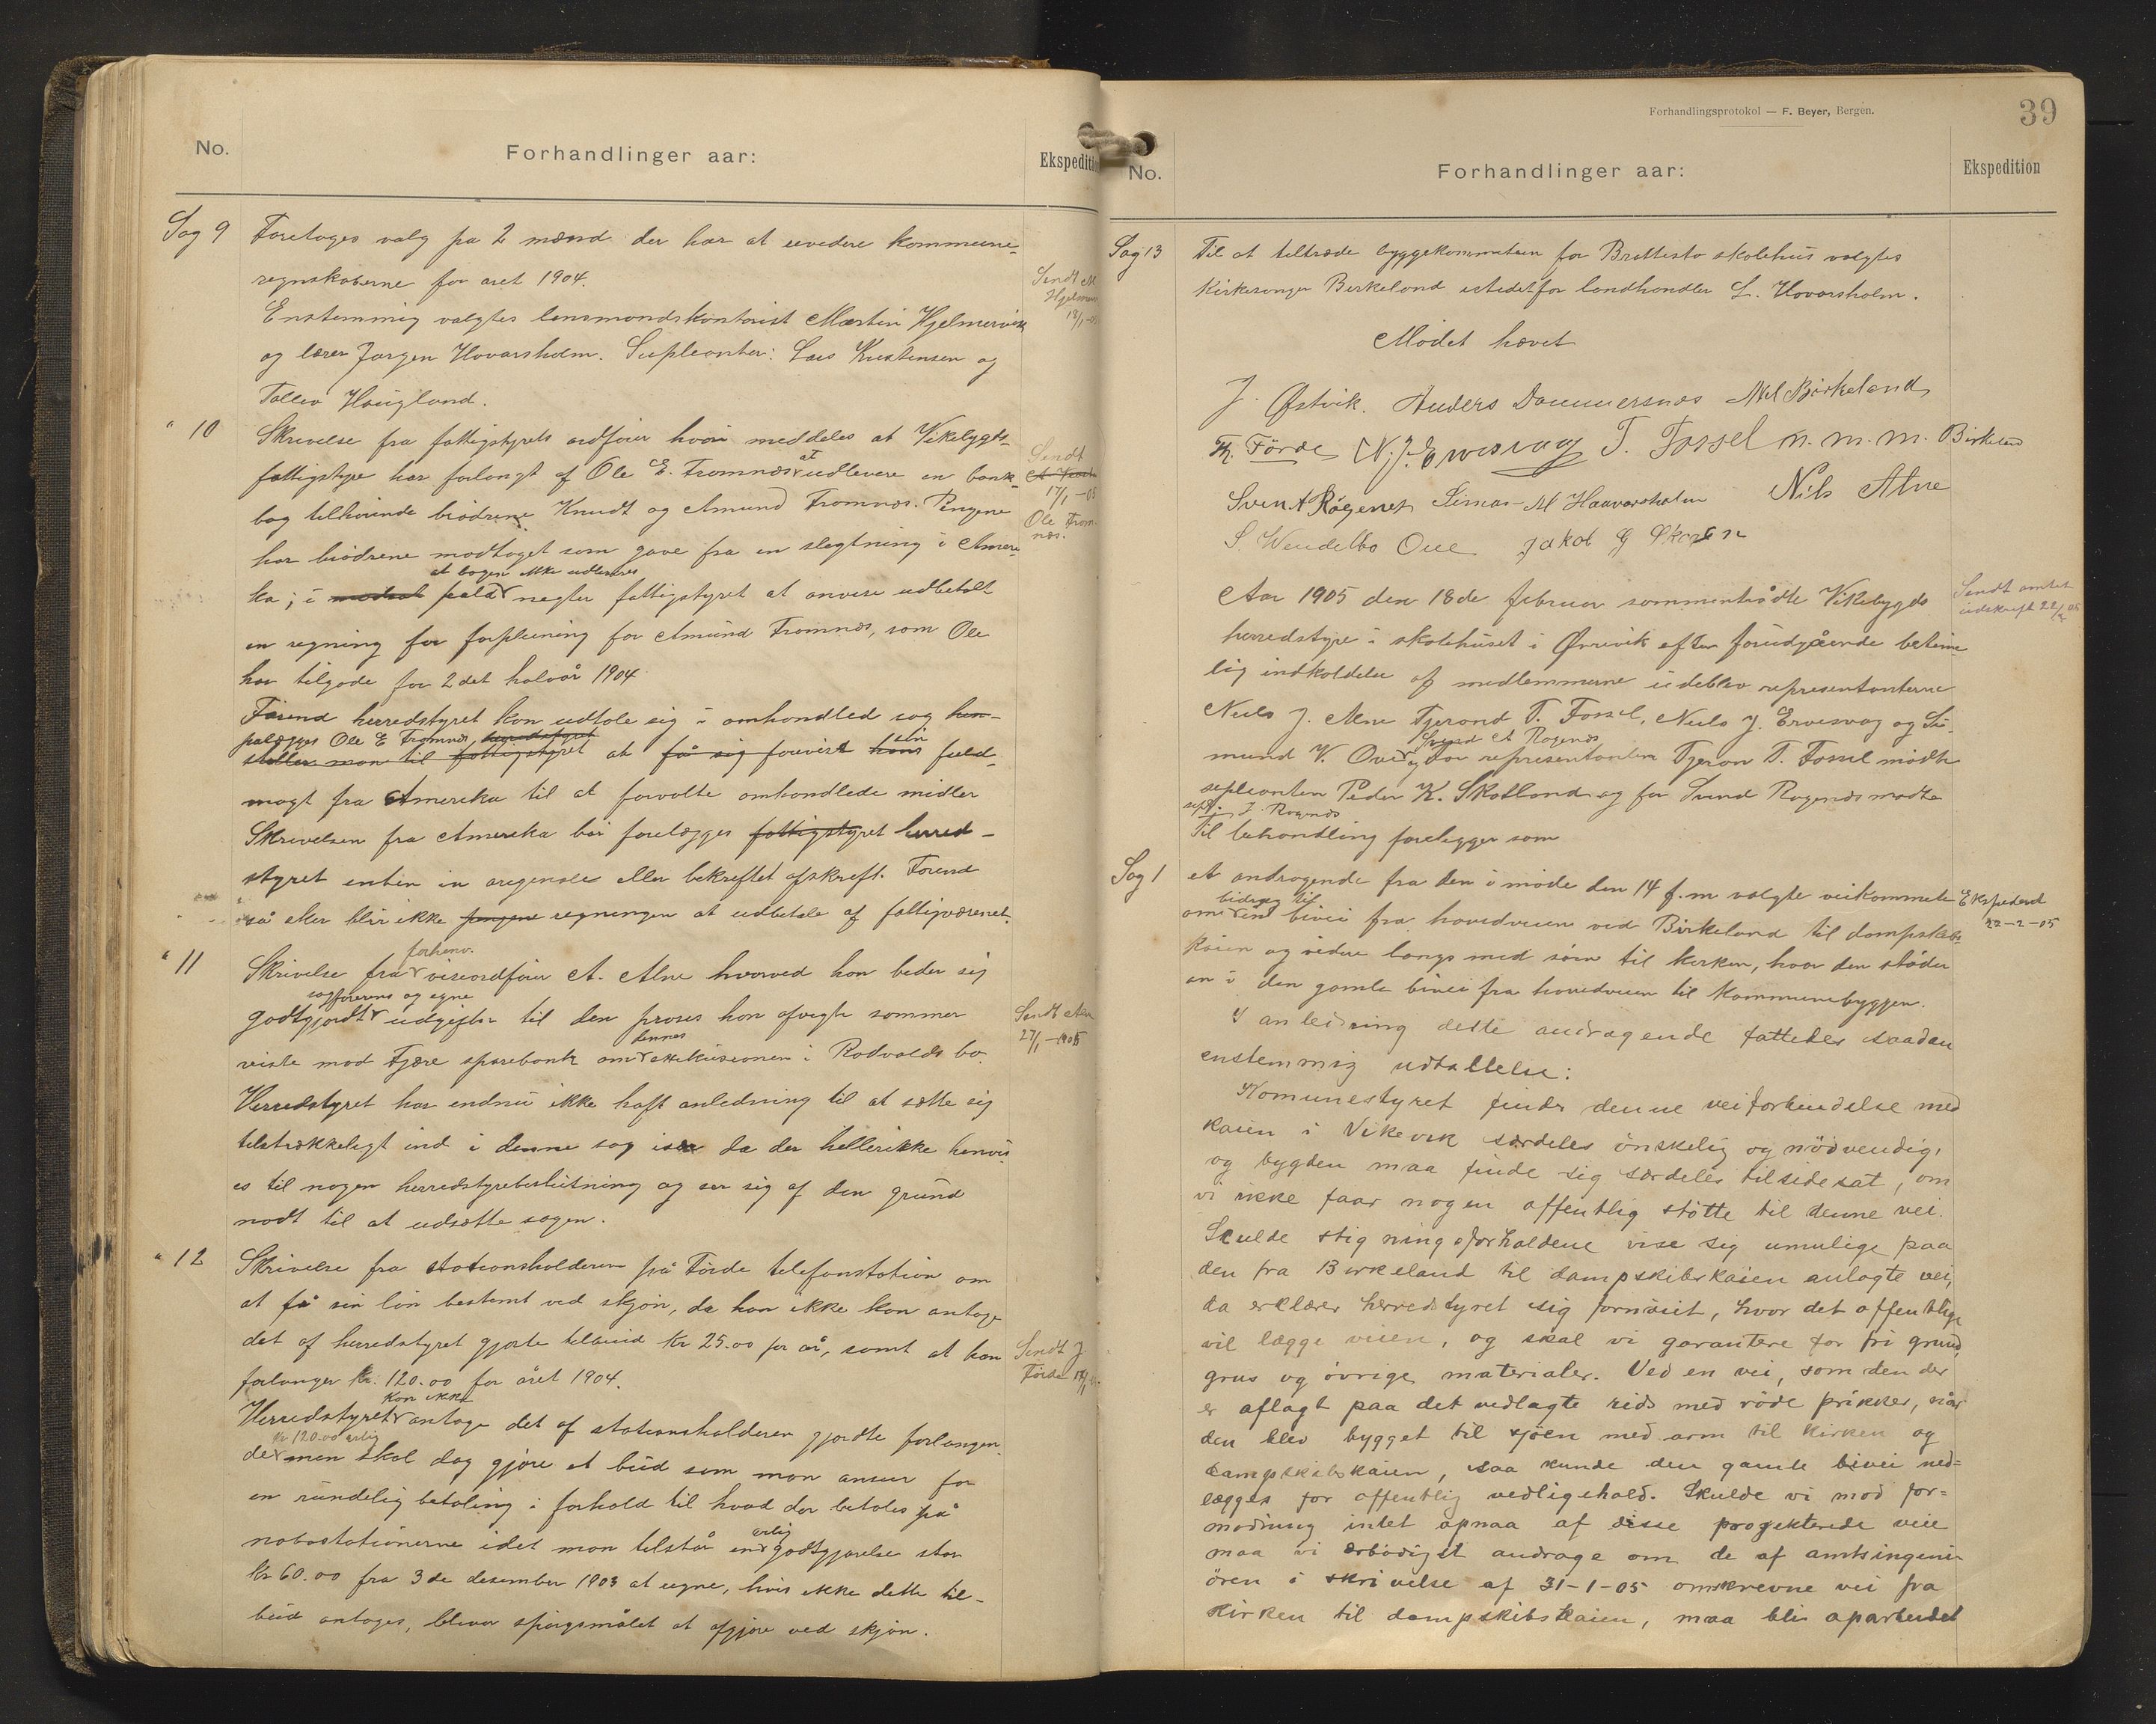 No.
Forhandlinger aar:
Ekspedition
Sag 9
Foretages valg pa 2 mænd der har at revidere kommune-
regnskaberne for aret 1904.
Enstemmig valgtes lensmandskontorist Martin Hjelmervik
og lærer Jørgen Hovarsholm. Supleanter: Lars Kristensen og
Tollev Haugland.
Sendt M
Hjelmer
18/1-05
" 10
Skrivelse fra fattigstyrets ordfører hvori meddeles at Vikebygds
fattigstyre har forlangt af Ole E. Fromnæs at udlevere en bank-
bog tilhørende brødrene Knudt og Amund Fromnæs. Pengene
har brødrene modtaget som gave fra en slegtning i Ameri
at bogen ikke udleveres
ka; i modsat fald negter fattigstyret at anvise udbetalt
en regning for forpleining for Amund Fromnæs, som Ole
har tilgode for 2det halvår 1904
Sendt
17/1-05
Ole From
næs.
Førend herredstyret kan udtale sig i omhandled sag hen-
palægges Ole E Fromnæs herredstyret
stiller man til fattigstyret at få sig forevist hans sin fuld-
magt fra Amerika til at forvalte omhandlede midler
Skrivelsen fra Amerika bør forelægges fattigstyret herred-
styret enten in orginale eller bekreftet afskreft. Førend
så sker blir ikke pengene regningen at udbetale af fattigvæsenet.
" 11
forhenv.
Skrivelse fra viseordfører A. Alne hvorved han beder sig
sagførerens og egne
godtgjordt udgifter til den proses han afvigte sommer
dennes
reiste mod Fjære sparebank om eksekusionen i Rodvolds bo.
Sendt Alne
27/1-1905
Herredstyret har endnu ikke haft anledning til at sætte sig
telstrækkeligt ind i denne sag især da der hellerikke henvis
es til nogen herredstyrebeslutning og ser sig af den grund
nødt til at udsætte sagen.
" 12
Skrivelse fra stationsholderen på Førde telefonstation om
at få sin løn bestemt ved skjøn, da han ikke kan antage
det af herredstyret gjorte tilbud Kr 25.00 pr år, samt at han
forlanger Kr. 120.00 for året 1904.
Sendt J
Førde
kan ikke
Herredstyret antage det af stationsholderen gjordte forlangen
Kr 120.00 årlig
de men skal dog gjøre et bud som man anser for
en rundelig betaling i forhold til hvad der betales på
nabostationerne idet man tilstår en årlig godtgjørelse stor
Kr 60.00 fra 3de desember 1903 at regne, hvis ikke dette til-
bud antages, bliver spørgsmålet at afgjøre ved skjøn.
Forhandlingsprotokol — F. Beyer, Bergen.
39
No.
Forhandlinger aar:
Ekspedition
Sag 13
Til at tiltræde byggekommiteen for Brettestø skolehus valgtes
kirkesanger Birkeland istedetfor landhandler L. Hovarsholm.
Mødet hævet
J. Østvik. Anders Dommersnæs Mel Birkeland
Th. Förde N. J. Ervesvag T. Fossel M. M. M. Birkeland
Sven A Rögenes Simon M Haavarsholm Nils Alne
S. Wendelbo Oue Jakob G Økoren
Aar 1905 den 18de februar sammentrådte Vikebygds
herredstyre i skolehuset i Ørrivik efter forudgående betime
lig indkaldelse af medlemmerne udeblev representanterne
Niels J. Alne Tjerand T. Fossel, Niels J. Ervesvag og Si-
Svend A Rogenes
mund V. Oue og for representanten Tjeran T. Fossel mødte
supleanten Peder K. Skotland og for Svend Rogenes mødte
supl. J. Rogenes
Til behandling foreligger som
Sendt amtet
udskreft 22/2 05
Sag 1
et andragende fra den i møde den 14 f.m valgte veikommete
bidrag til
om en bivei fra hovedveien ved Birkeland til dampskibs
kaien og videre langs med søen til kirken, hvor den støder
an i den gamle bivei fra hovedveien til Kommunebryggen.
Ekspederd
22-2-05
I anledning dette andragende fattedes saadan
enstemmig udtallelse:
Komunestyret finder denne veiforbindelse med
kaien i Vikevik særdeles önskelig og nödvendig,
og bygden maa finde sig særdeles tilsidesat, om
vi ikke faar nogen offentlig stötte til denne vei.
Skulde stigningsforholdene vise sig umulige paa
den fra Birkeland til dampskibskaien anlagte vei,
da erklærer herredstyret sig fornöiet, hvor det offentlige
vil lægge veien, og skal vi garantere for fri grund,
grus og övrige materialer. Ved en vei, som den der
er aflagt paa det vedlagte rids med röde prikker, når
den blev bygget til sjöen med arm til kirken og
dampskibskaien, saa kunde den gamle bivei ned=
lægges for offentlig vedligehold. Skulde vi mod for=
modning intet opnaa af disse projekterede veie
maa vi ærbödigst andrage om de af amtsingeni-
ören i skrivelse af 31-1-05 omskrevne vei fra
kirken til dampskibskaien, maa blir oparbeidet